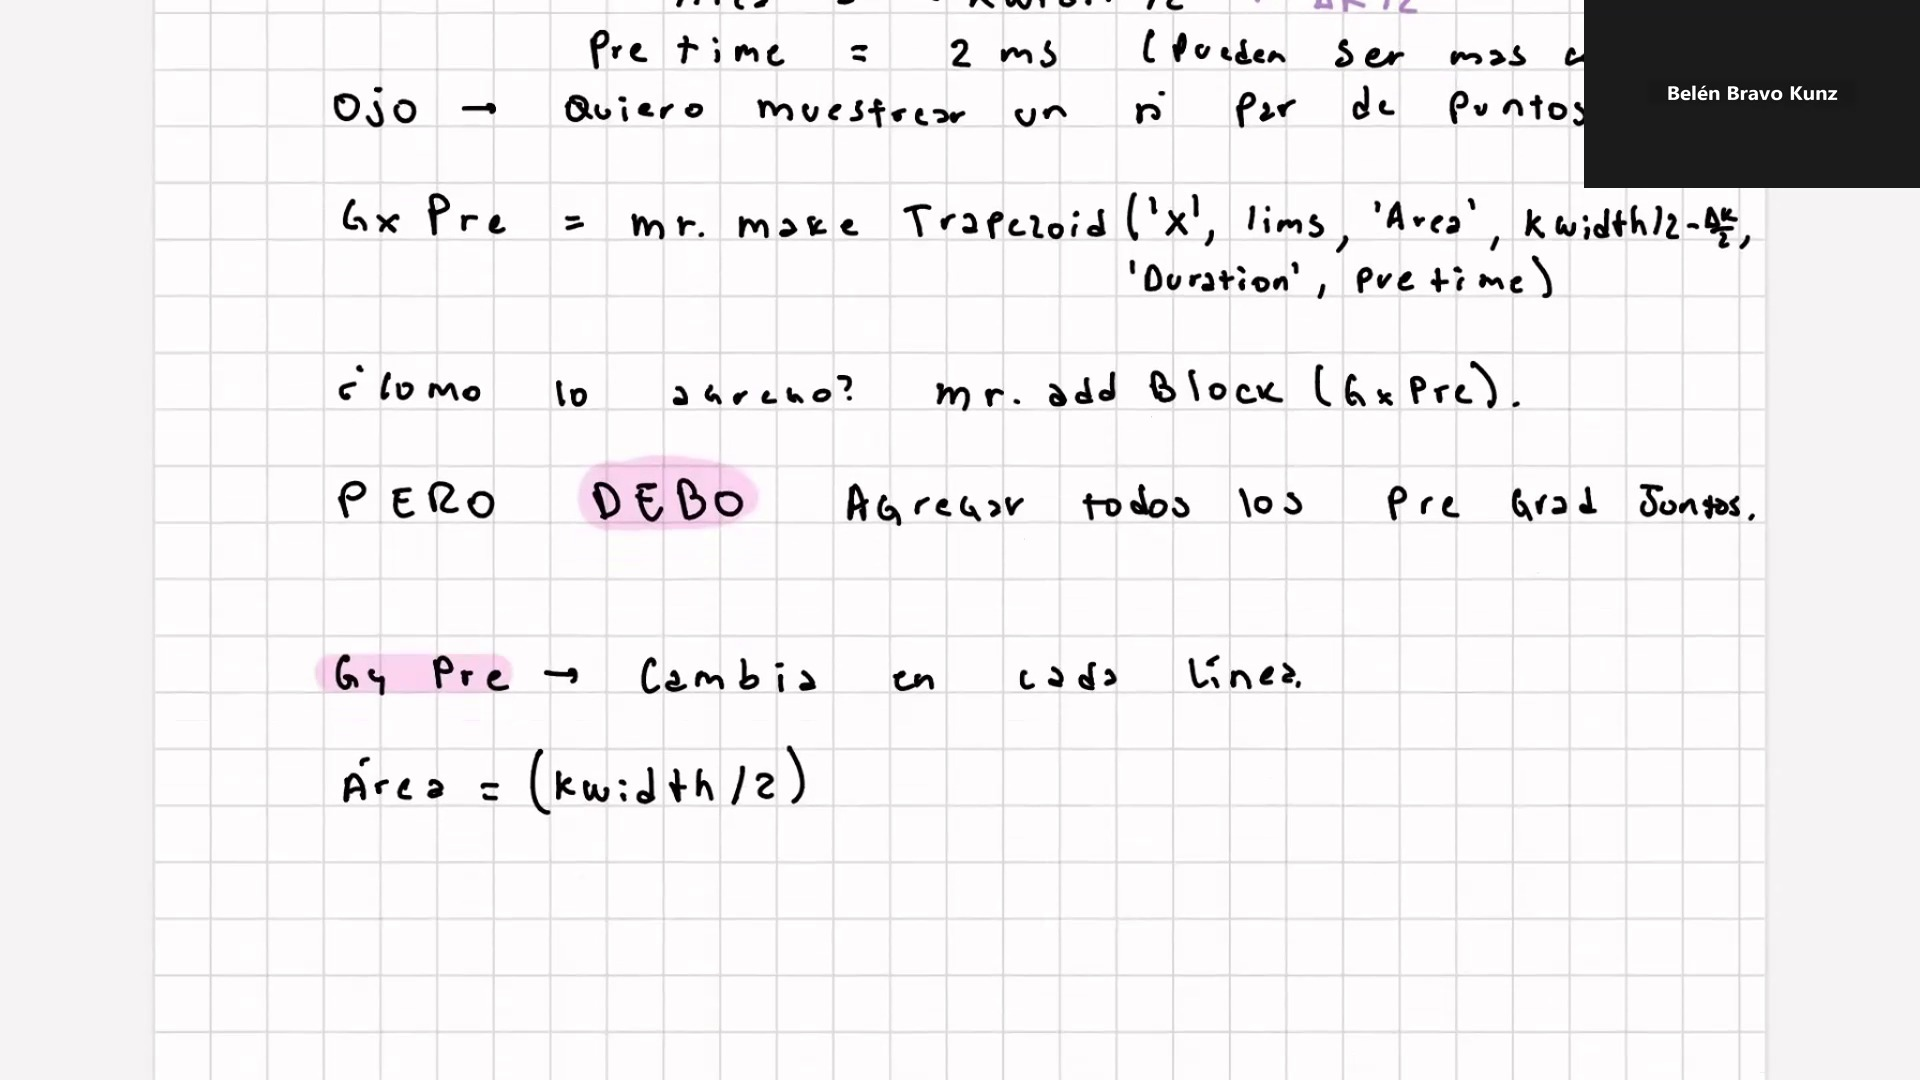 Kwidth/2 - ΔK/2
Pre time = 2 ms (Pueden ser mas
Ojo → Quiero muestrear un n° par de puntos
Belén Bravo Kunz
Gx Pre = mr. make Trapezoid ('X', lims, 'Area', Kwidth/2-ΔK/2,
'Duration', pre time)
¿Como lo agrego? mr. add Block (Gx Pre).
PERO DEBO Agregar todos los Pre Grad Juntos.
Gy Pre → Cambia en cada línea.
Área = (Kwidth/2)